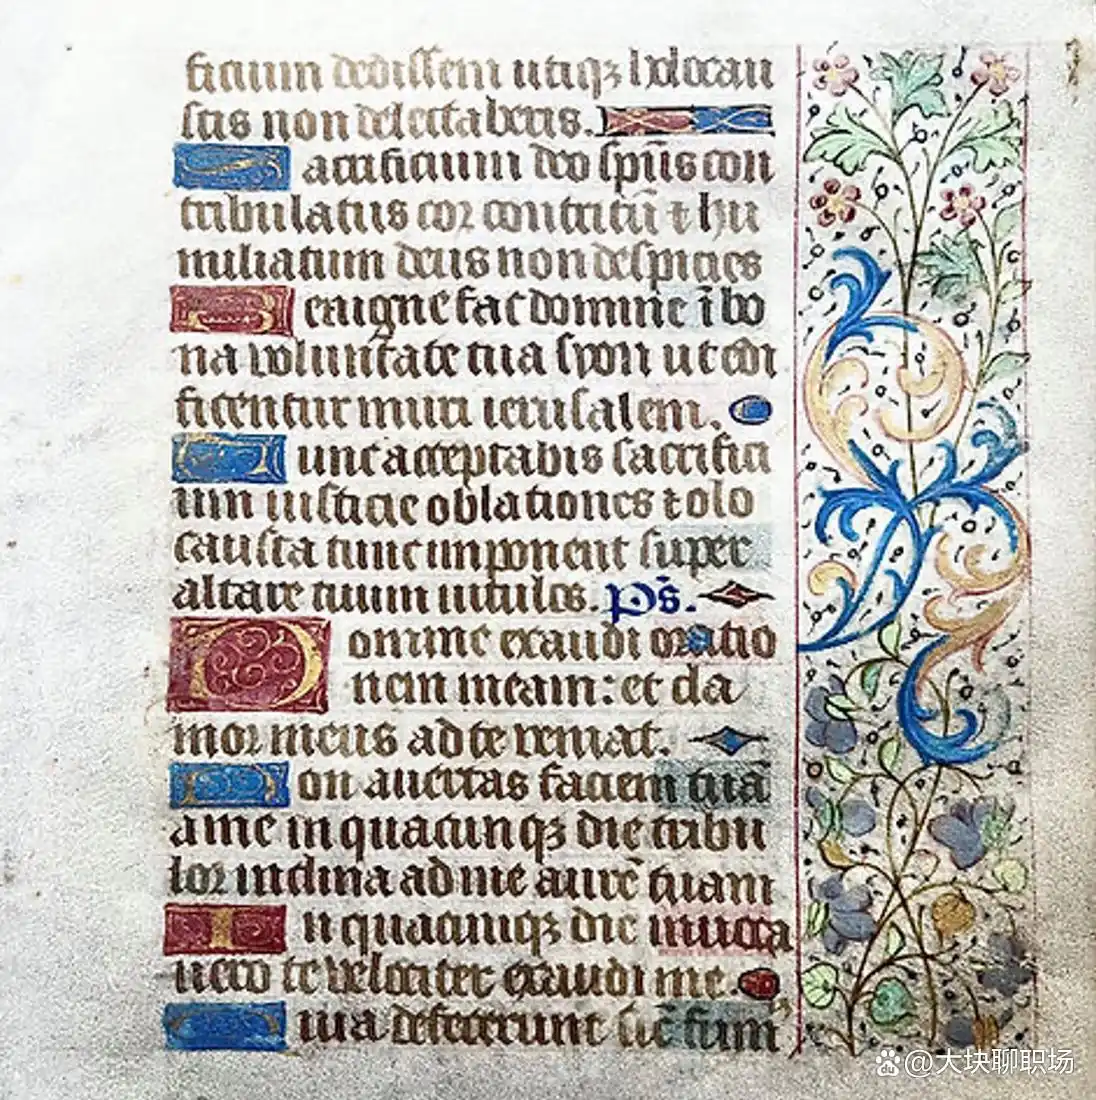 ficium dedissem utiqꝫ holocau
stis non delectaberis.
Sacrificium deo sp̄us con
tribulatus cor contritū ⁊ hu
miliatum deus non despicies
Benigne fac domine ī bo
na voluntate tua syon ut edi
ficentur muri ierusalem.
Tunc acceptabis sacrifici
um iusticie oblationes ⁊ olo
causta tunc imponent super
altare tuum vitulos. p̄s.
Domine exaudi oratio
nem meam: et cla
mor meus ad te veniat.
Non avertas faciem tuā
a me in quacunqꝫ die tribu
lor inclina ad me aurē tuam
In quacunqꝫ die invoca
vero te velociter exaudi me.
Quia defecerunt sic̄ fum
@大块聊职场